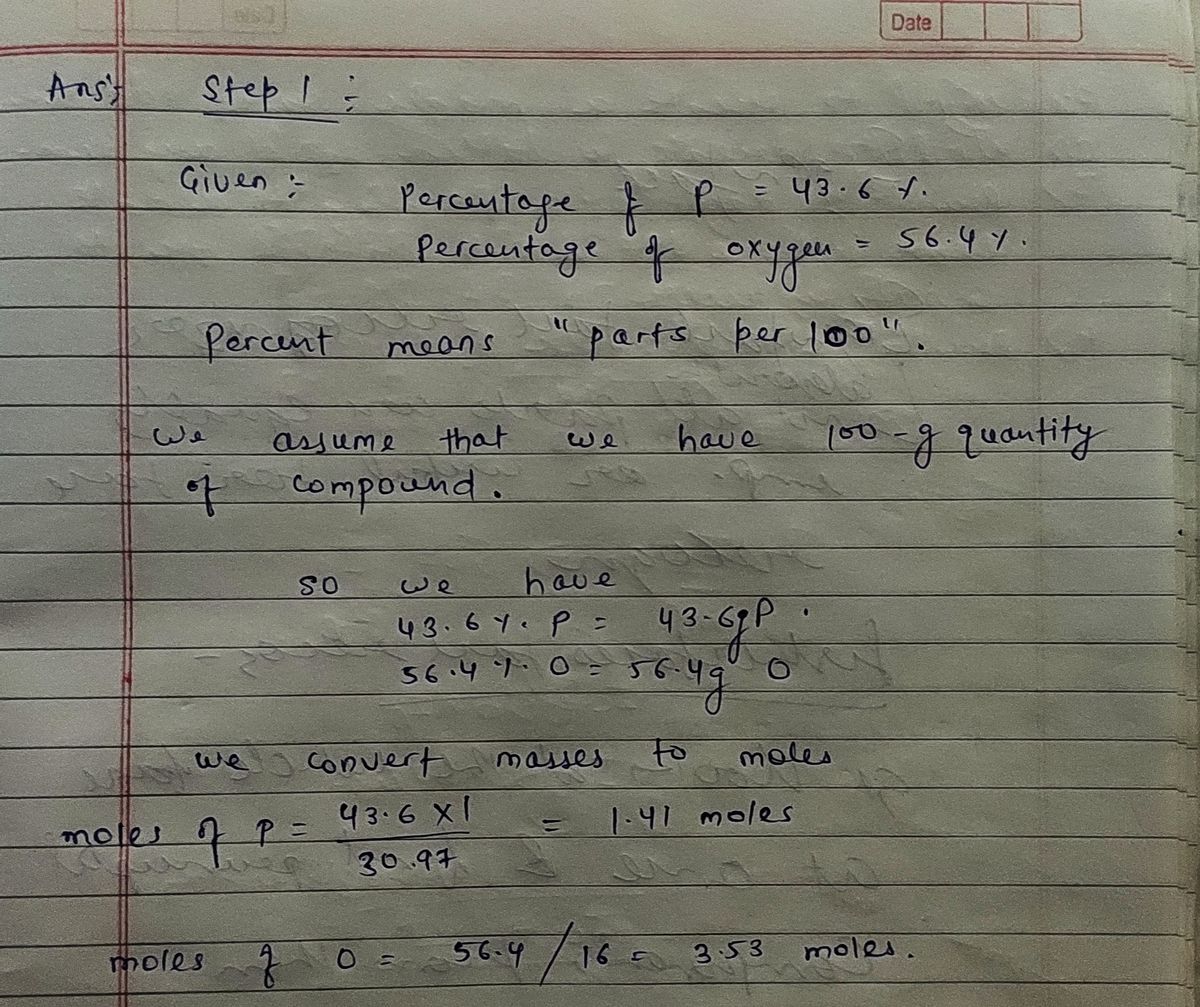 Date
Ans:
Step 1 :-
Given :-
Percentage of P = 43.6 %.
Percentage of oxygen = 56.4 %.
Percent means "parts per 100".
We assume that we have 100-g quantity
of compound.
so we have
43.6 %. P = 43.6g P.
56.4 %. O = 56.4g O
we convert masses to moles
moles of P = 43.6 X 1 / 30.97 = 1.41 moles
moles of O = 56.4 / 16 = 3.53 moles.